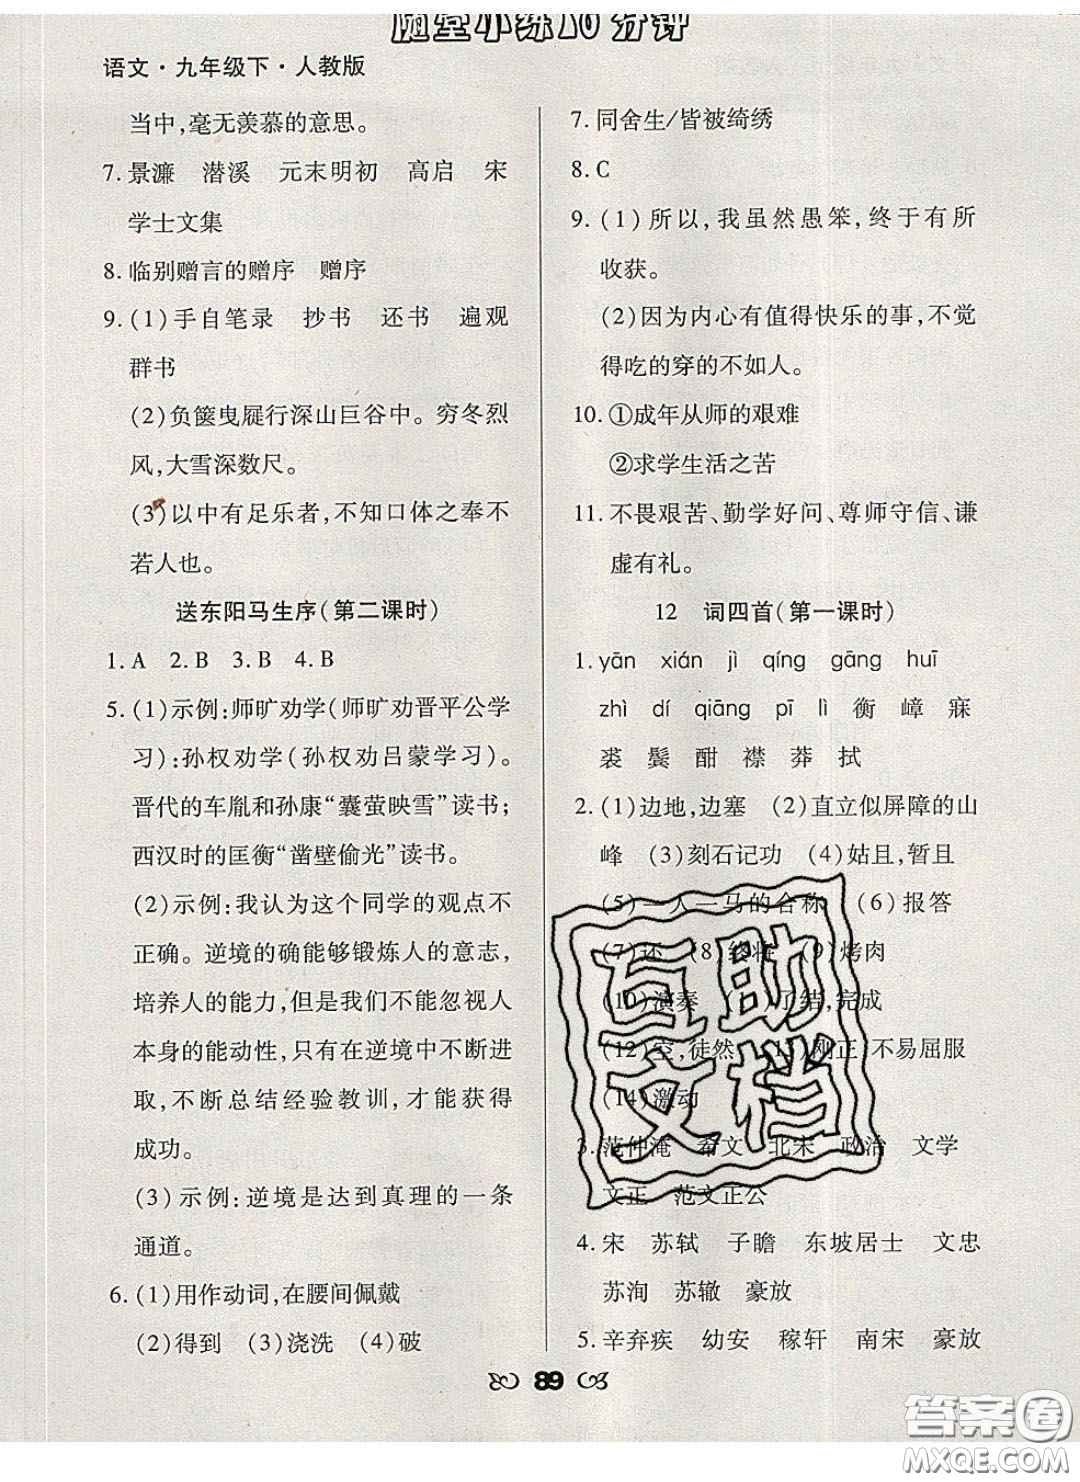 随堂小练10分钟
语文·九年级下·人教版
当中,毫无羡慕的意思。
7. 景濂 潜溪 元末明初 高启 宋
学士文集
8. 临别赠言的赠序 赠序
9. (1)手自笔录 抄书 还书 遍观
群书
(2)负箧曳屣行深山巨谷中。穷冬烈
风,大雪深数尺。
(3)以中有足乐者,不知口体之奉不
若人也。
送东阳马生序(第二课时)
1. A 2. B 3. B 4. B
5. (1)示例:师旷劝学(师旷劝晋平公学
习);孙权劝学(孙权劝吕蒙学习)。
晋代的车胤和孙康“囊萤映雪”读书;
西汉时的匡衡“凿壁偷光”读书。
(2)示例:我认为这个同学的观点不
正确。逆境的确能够锻炼人的意志,
培养人的能力,但是我们不能忽视人
本身的能动性,只有在逆境中不断进
取,不断总结经验教训,才能获得
成功。
(3)示例:逆境是达到真理的一条
通道。
6. (1)用作动词,在腰间佩戴
(2)得到 (3)浇洗 (4)破
7. 同舍生/皆被绮绣
8. C
9. (1)所以,我虽然愚笨,终于有所
收获。
(2)因为内心有值得快乐的事,不觉
得吃的穿的不如人。
10. ①成年从师的艰难
②求学生活之苦
11. 不畏艰苦、勤学好问、尊师守信、谦
虚有礼。
12 词四首(第一课时)
1. yān xián jì qíng gāng huī
zhì dí qiāng pī lì 衡 嶂 寐
裘 鬓 酣 襟 莽 拭
2. (1)边地,边塞 (2)直立似屏障的山
峰 (3)刻石记功 (4)姑且,暂且
(5)一人一马的合称 (6)报答
(7)还 (8)终将 (9)烤肉
(10)演奏 了结,完成
(12)空,徒然 刚正,不易屈服
(14)激动
3. 范仲淹 希文 北宋 政治 文学
文正 范文正公
4. 宋 苏轼 子瞻 东坡居士 文忠
苏洵 苏辙 豪放
5. 辛弃疾 幼安 稼轩 南宋 豪放
89
互助
文档
答案圈
MXQE.COM